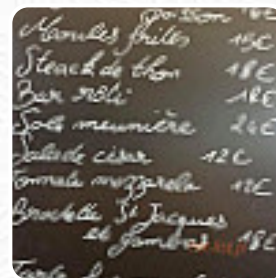 poisson 16€
Moules frites 15€
Steack de thon 18€
Bar rôti 18€
Sole meunière 24€
Salade césar 12€
Tomate mozzarela 12€
Brochette St Jacques
et gambas 18€